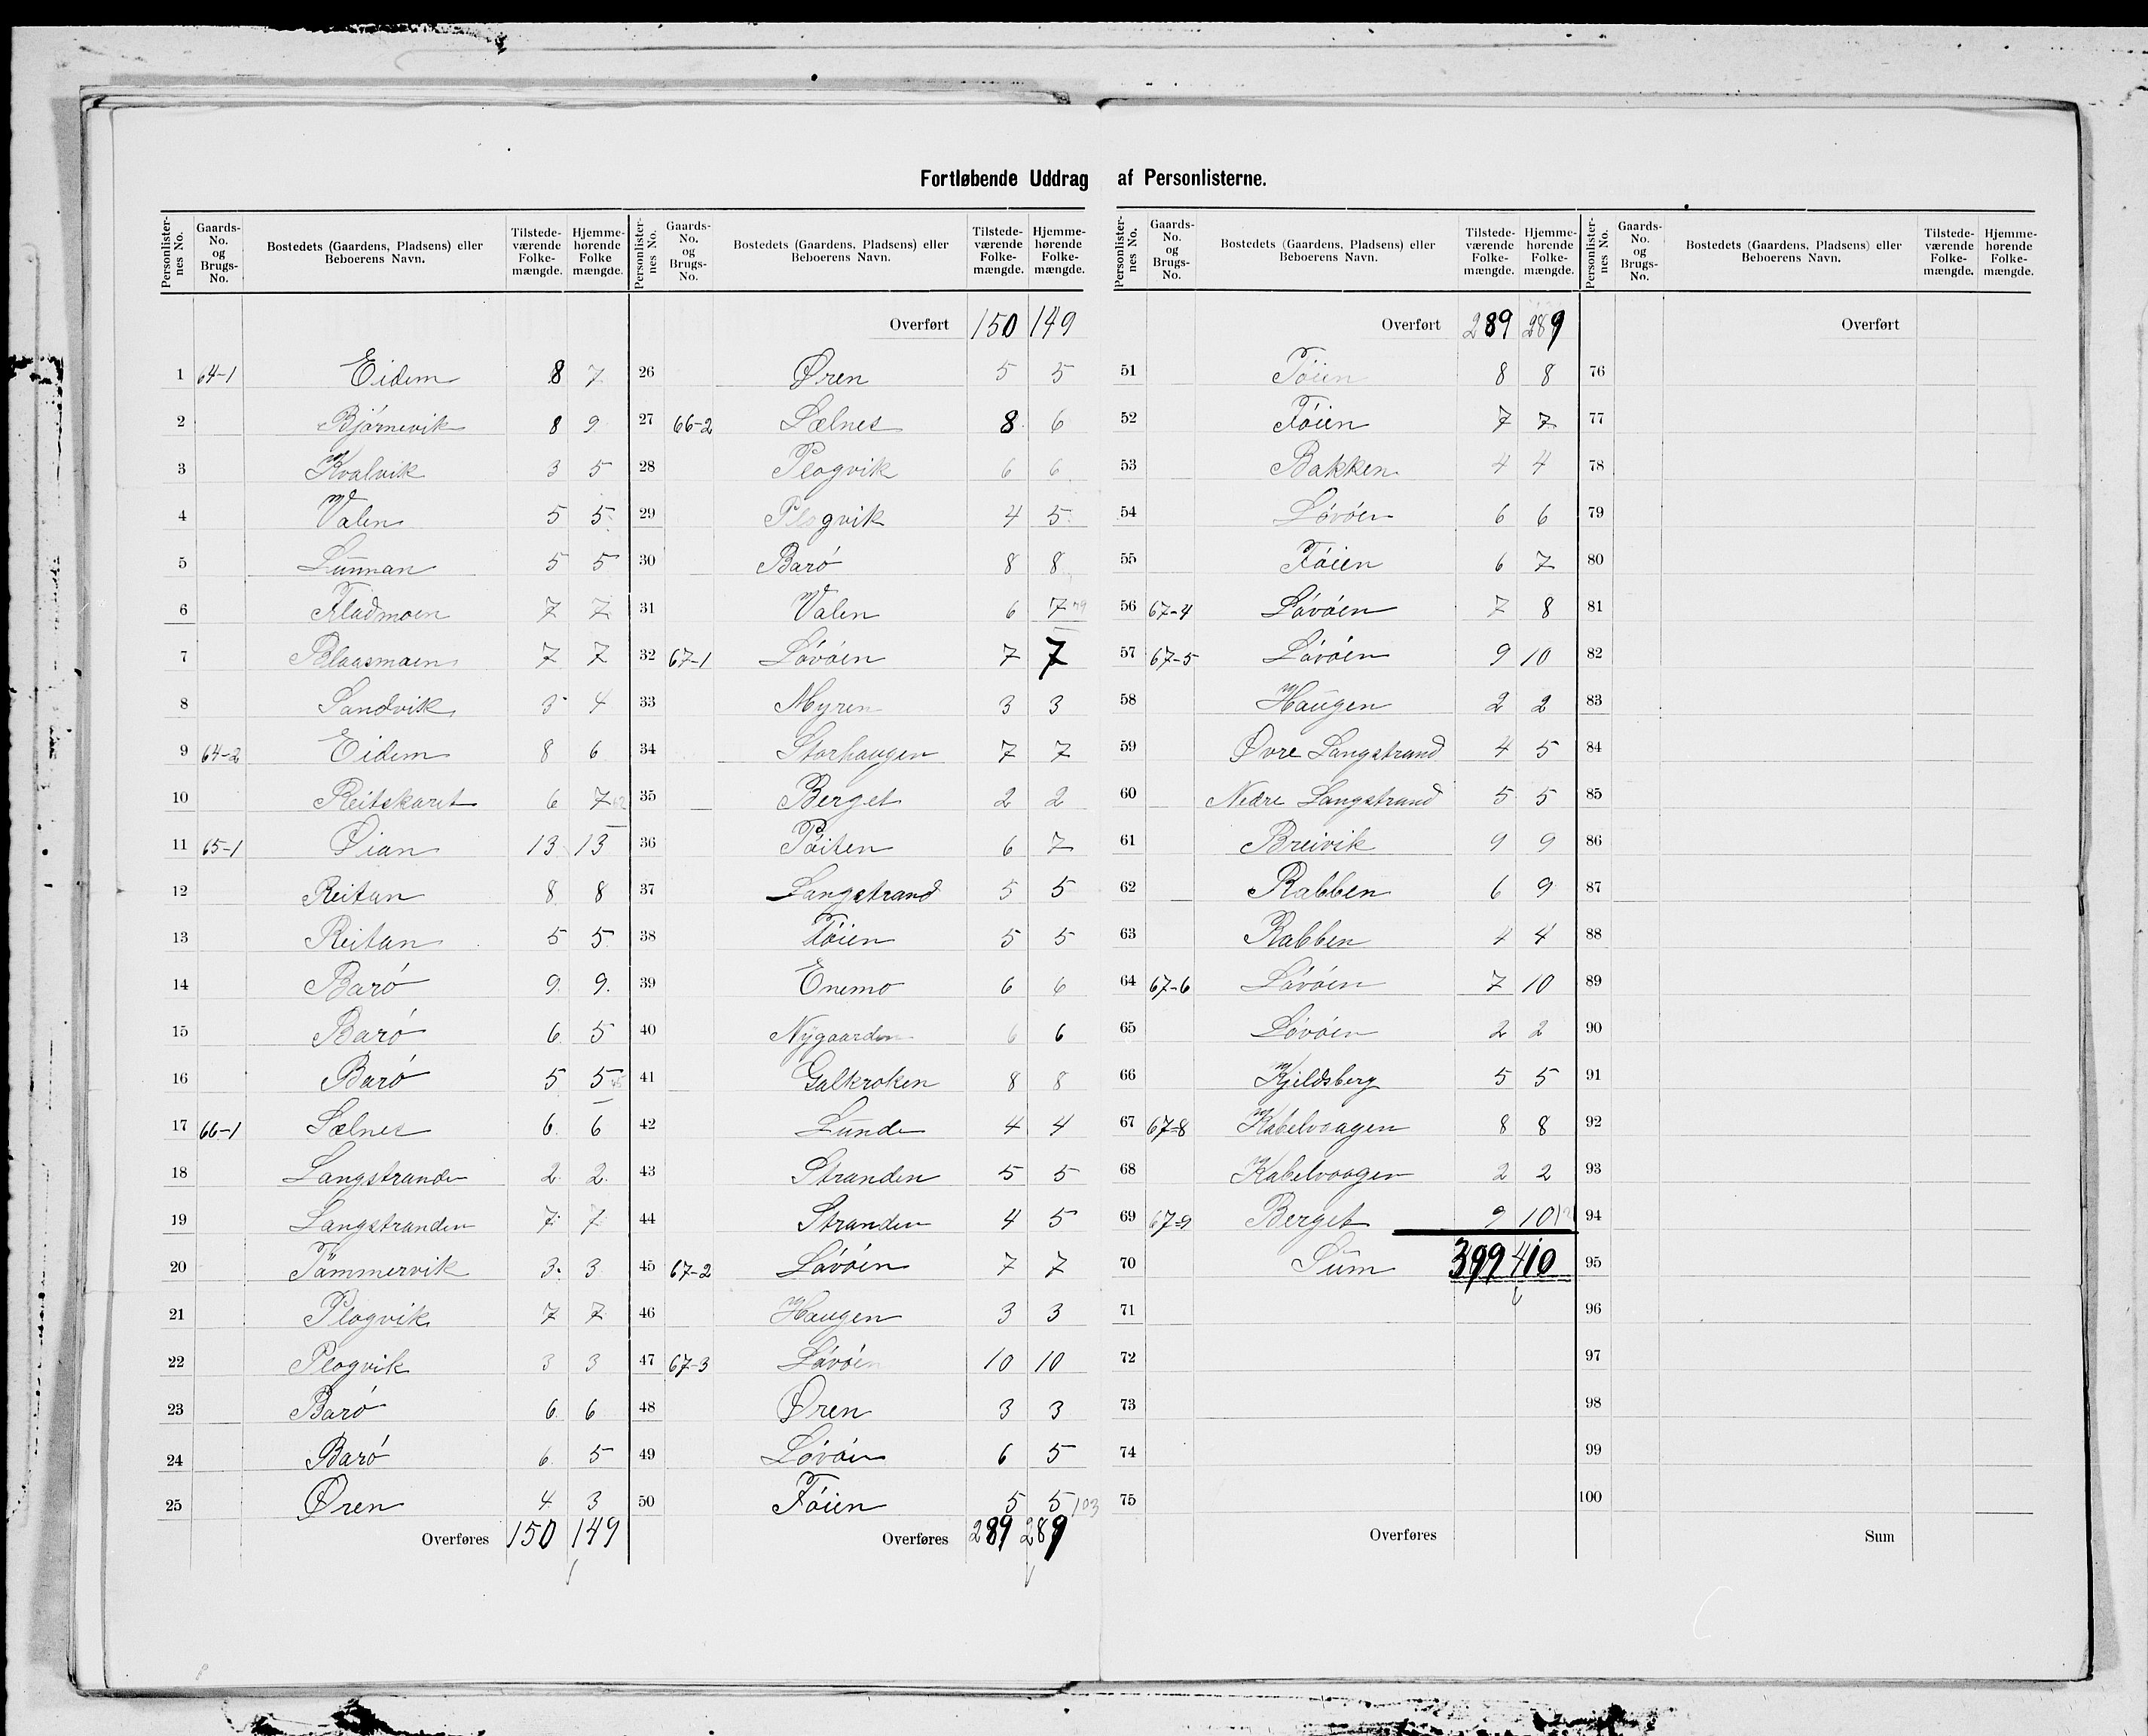 Fortløbende Uddrag af Personlisterne.
Personlister-nes No. | Gaards-No. og Brugs-No. | Bostedets (Gaardens, Pladsens) eller Beboerens Navn. | Tilstede-værende Folke-mængde. | Hjemme-hørende Folke mængde.
1 64-1 Eidem 8 7
2 Bjórnevik 8 9
3 Kvalvik 3 5
4 Valen 5 5
5 Lunnan 5 5
6 Fladmoen 7 7
7 Blaasmoen 7 7
8 Sandvik 3 4
9 64-2 Eidem 8 6
10 Reitskaret 6 7 62
11 65-1 Øian 13 13
12 Reitan 8 8
13 Reitan 5 5
14 Baró 9 9
15 Baró 6 5
16 Baró 5 5 45
17 66-1 Sælnes 6 6
18 Langstranden 2 2
19 Langstranden 7 7
20 Tómmervik 3 3
21 Plogvik 7 7
22 Plogvik 3 3
23 Baró 6 6
24 Baró 6 5
25 Øren 4 3
Overføres 150 149
Personlister-nes No. | Gaards-No. og Brugs-No. | Bostedets (Gaardens, Pladsens) eller Beboerens Navn. | Tilstede-værende Folke-mængde. | Hjemme-hørende Folke-mængde.
Overført 150 149
26 Øren 5 5
27 66-2 Sælnes 8 6
28 Plogvik 6 6
29 Plogvik 4 5
30 Baró 8 8
31 Valen 6 7 79
32 67-1 Lóvóen 7 7
33 Myren 3 3
34 Storhaugen 7 7
35 Berget 2 2
36 Póiten 6 7
37 Langstrand 5 5
38 Tóien 5 5
39 Enemo 6 6
40 Nygaarden 6 6
41 Galkroken 8 8
42 Lunde 4 4
43 Stranden 5 5
44 Stranden 4 5
45 67-2 Lóvóen 7 7
46 Haugen 3 3
47 67-3 Lóvóen 10 10
48 Øren 3 3
49 Lóvóen 6 5
50 Tóien 5 5 103
Overføres 289 289
Personlister-nes No. | Gaards-No. og Brugs-No. | Bostedets (Gaardens, Pladsens) eller Beboerens Navn. | Tilstede-værende Folke-mængde. | Hjemme-hørende Folke-mængde.
Overført 289 289
51 Tóien 8 8
52 Tóien 7 7
53 Bakken 4 4
54 Lóvóen 6 6
55 Tóien 6 7
56 67-4 Lóvóen 7 8
57 67-5 Lóvóen 9 10
58 Haugen 2 2
59 Øvre Langstrand 4 5
60 Nedre Langstrand 5 5
61 Breivik 9 9
62 Rabben 6 9
63 Rabben 4 4
64 67-6 Lóvóen 7 10
65 Lóvóen 2 2
66 Kjeldsberg 5 5
67 67-8 Kabelvaagen 8 8
68 Kabelvaagen 2 2
69 67-9 Berget 9 10
70 Sum 399 410
71
72
73
74
75
Overføres
Personlister-nes No. | Gaards-No. og Brugs-No. | Bostedets (Gaardens, Pladsens) eller Beboerens Navn. | Tilstede-værende Folke-mængde. | Hjemme-hørende Folke-mængde.
Overført
76
77
78
79
80
81
82
83
84
85
86
87
88
89
90
91
92
93
94
95
96
97
98
99
100
Sum